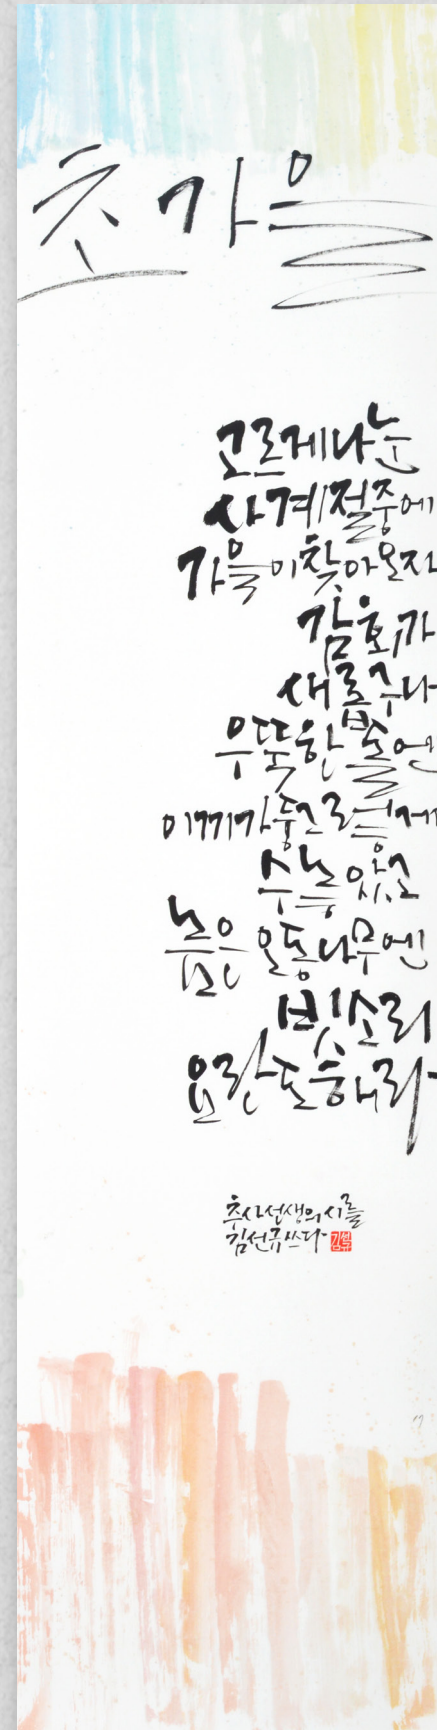 초가을
고르게 나눈
사계절 중에
가을이 찾아오자
감회가
새롭구나
우뚝한 돌엔
이끼가 둥그렇게
수놓았고
높은 오동나무엔
빗소리
요란도 해라
추사선생의 시를
김선규 쓰다
김선규